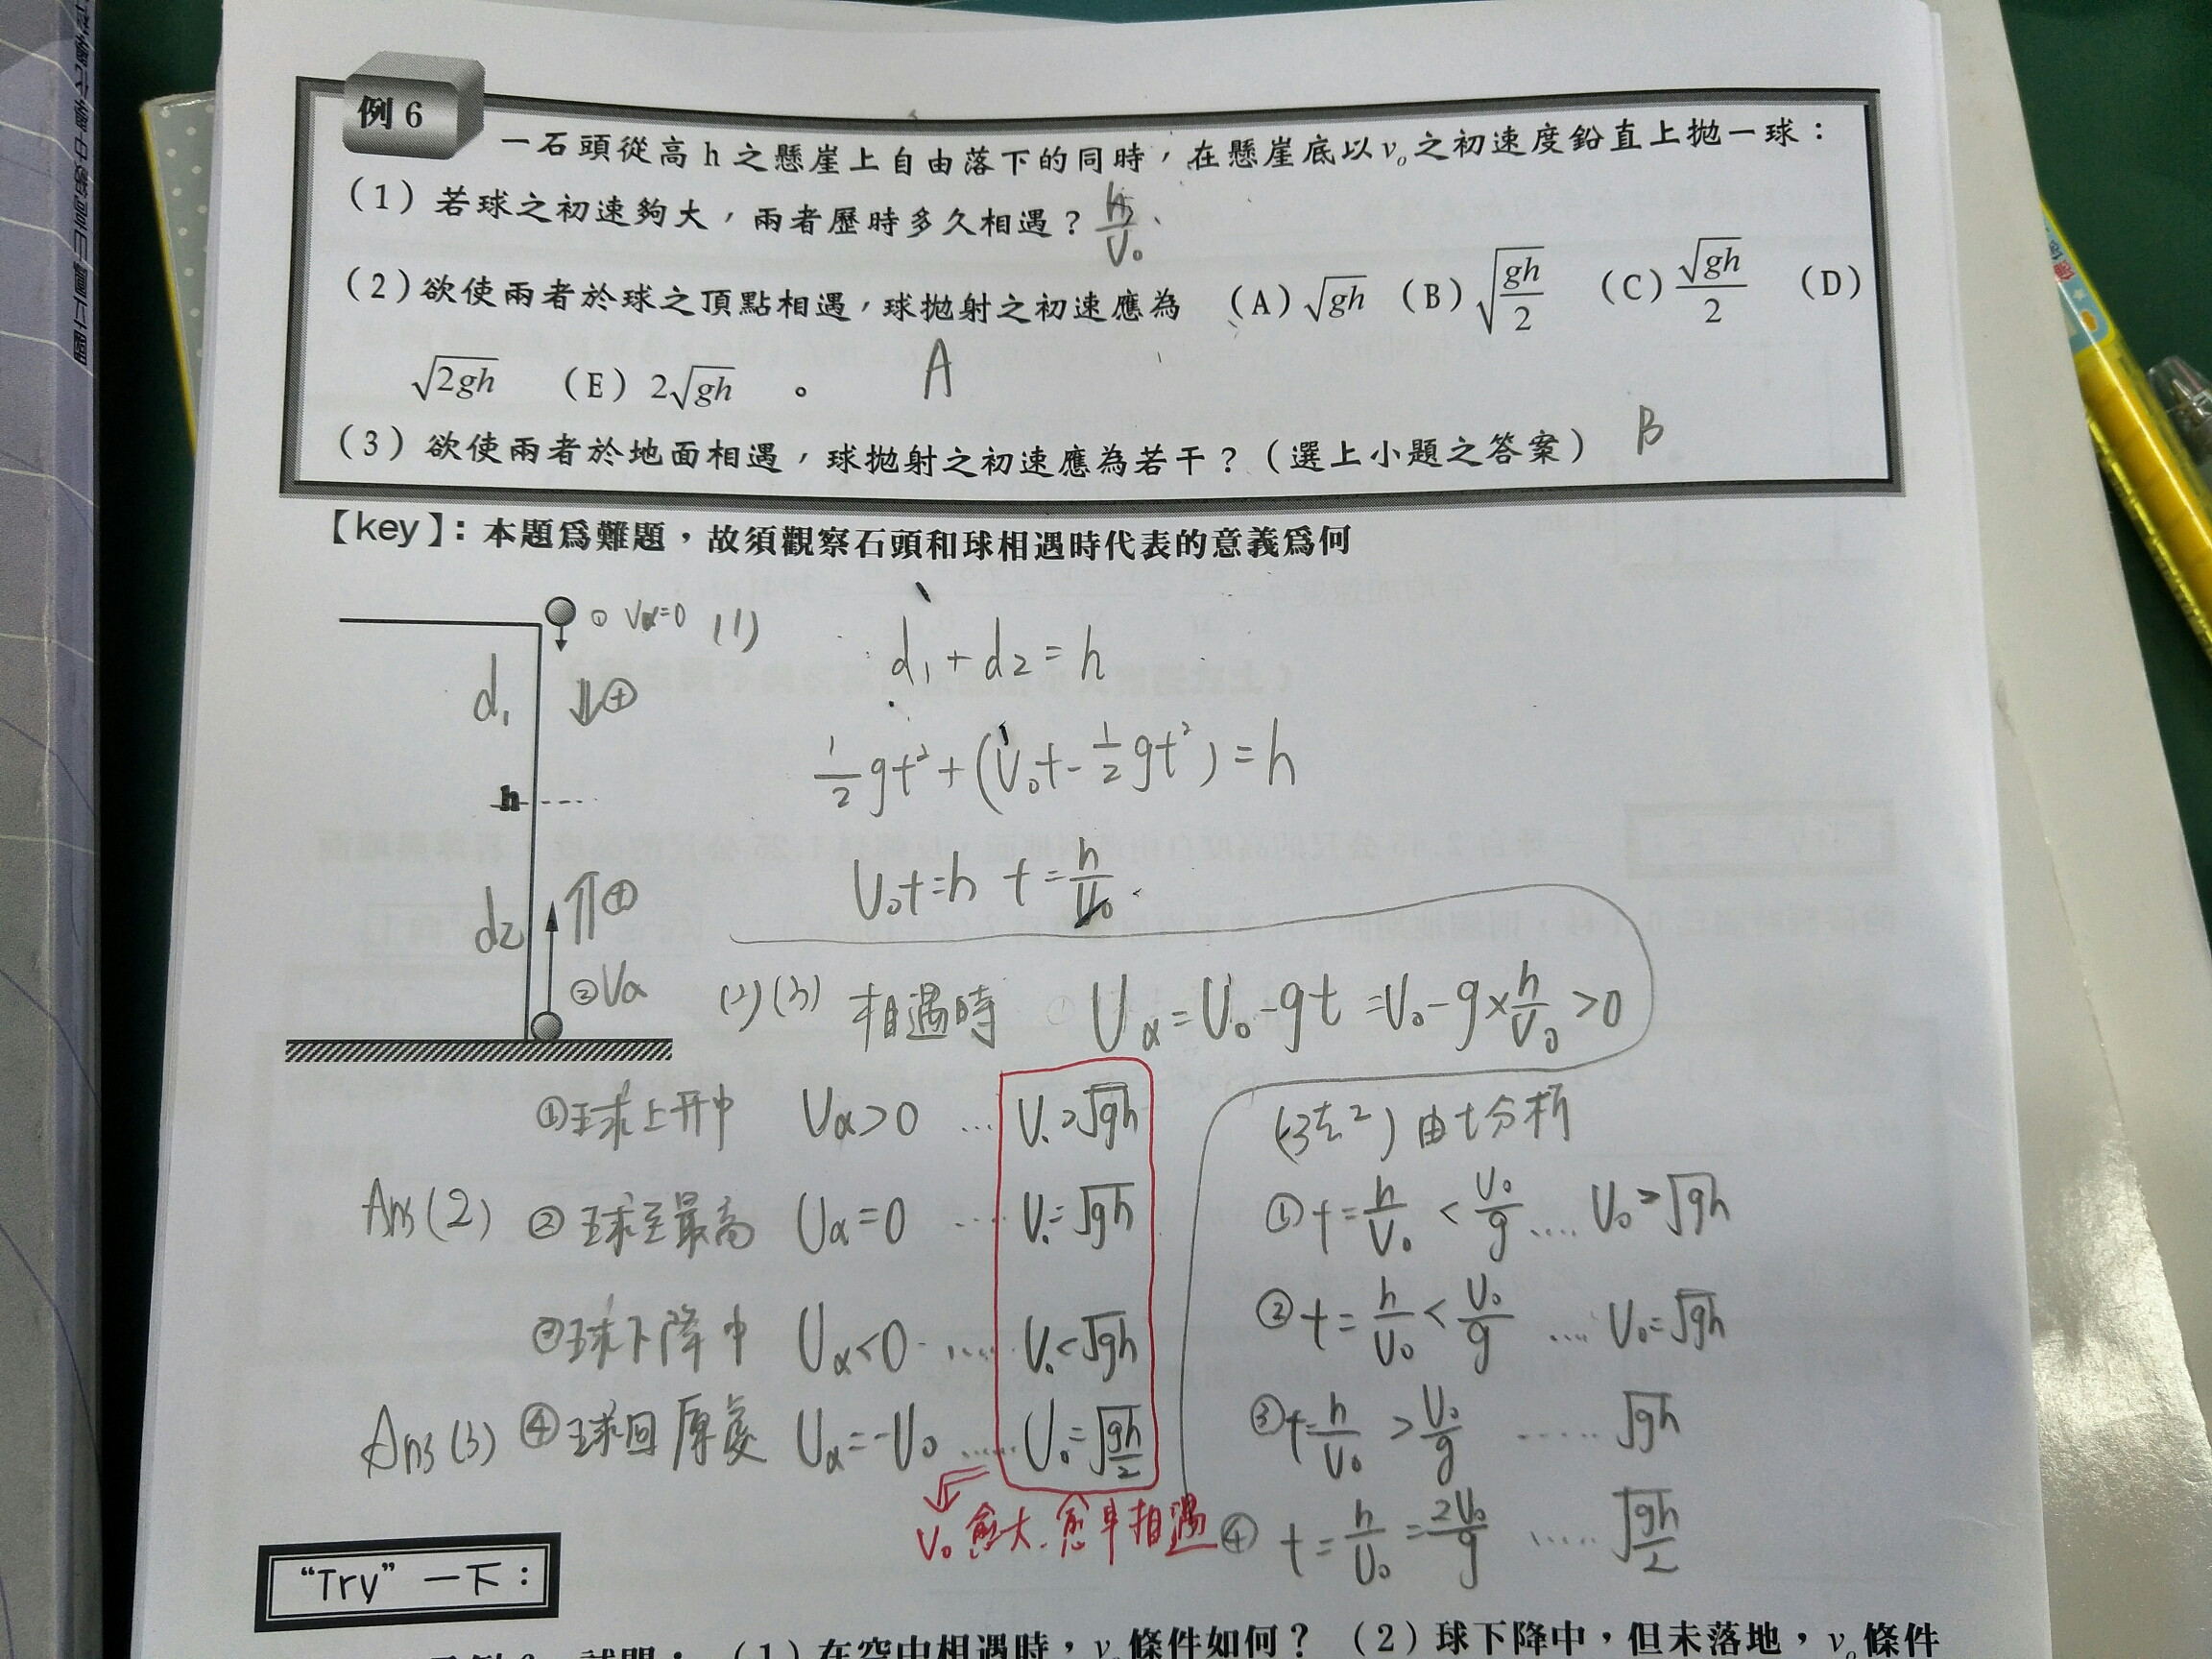 例6
一石頭從高h之懸崖上自由落下的同時，在懸崖底以v₀之初速度鉛直上拋一球：
(1)若球之初速夠大，兩者歷時多久相遇？ h/V₀
(2)欲使兩者於球之頂點相遇，球拋射之初速應為 (A)√gh (B)√(gh/2) (C)√gh/2 (D)
√2gh (E)2√gh 。 A
(3)欲使兩者於地面相遇，球拋射之初速應為若干？(選上小題之答案) B
【key】：本題為難題，故須觀察石頭和球相遇時代表的意義為何
① Vα=0 (1) d₁+d₂=h
d₁ ⇓⊕
½gt²+(V₀t-½gt²)=h
h
V₀t=h t=h/V₀
d₂ ⇑⊕
②Vα
(2)(3) 相遇時 Vα=V₀-gt=V₀-g×h/V₀>0
①球上升中 Vα>0 … V₀>√gh
Ans(2) ②球至最高 Vα=0 … V₀=√gh
③球下降中 Vα<0 …… V₀<√gh
Ans(3) ④球回原處 Vα=-V₀ …… V₀=√(gh/2)
V₀愈大.愈早相遇
(法2) 由t分析
①t=h/V₀ < V₀/g …. V₀>√gh
②t=h/V₀ < V₀/g …. V₀=√gh
③t=h/V₀ > V₀/g …… √gh
④ t=h/V₀=2V₀/g …… √(gh/2)
“Try”一下：
試問：(1)在空中相遇時，v₀條件如何？(2)球下降中，但未落地，v₀條件